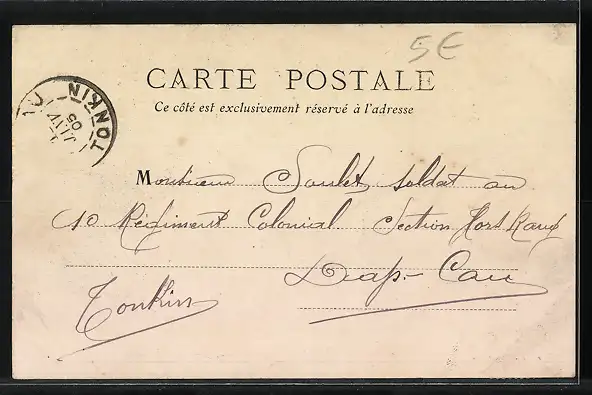 5€
CARTE POSTALE
Ce côté est exclusivement réservé à l'adresse
TONKIN
JUIL
05
Monsieur Soulet soldat au
10 Régiment Colonial Section Hors Rang
Dap-Cau
Tonkin